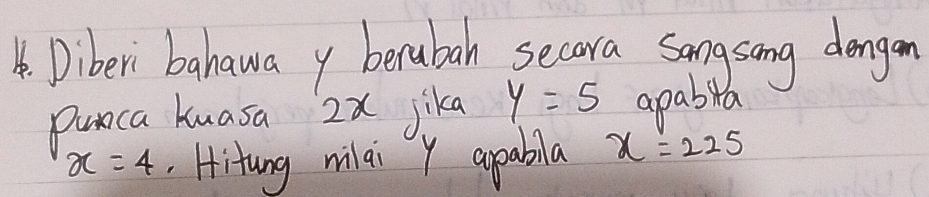 4. Diberi bahawa y berubah secara songsang dengan
punca kuasa 2x jika y = 5 apabila
x = 4. Hitung nilai y apabila x = 225